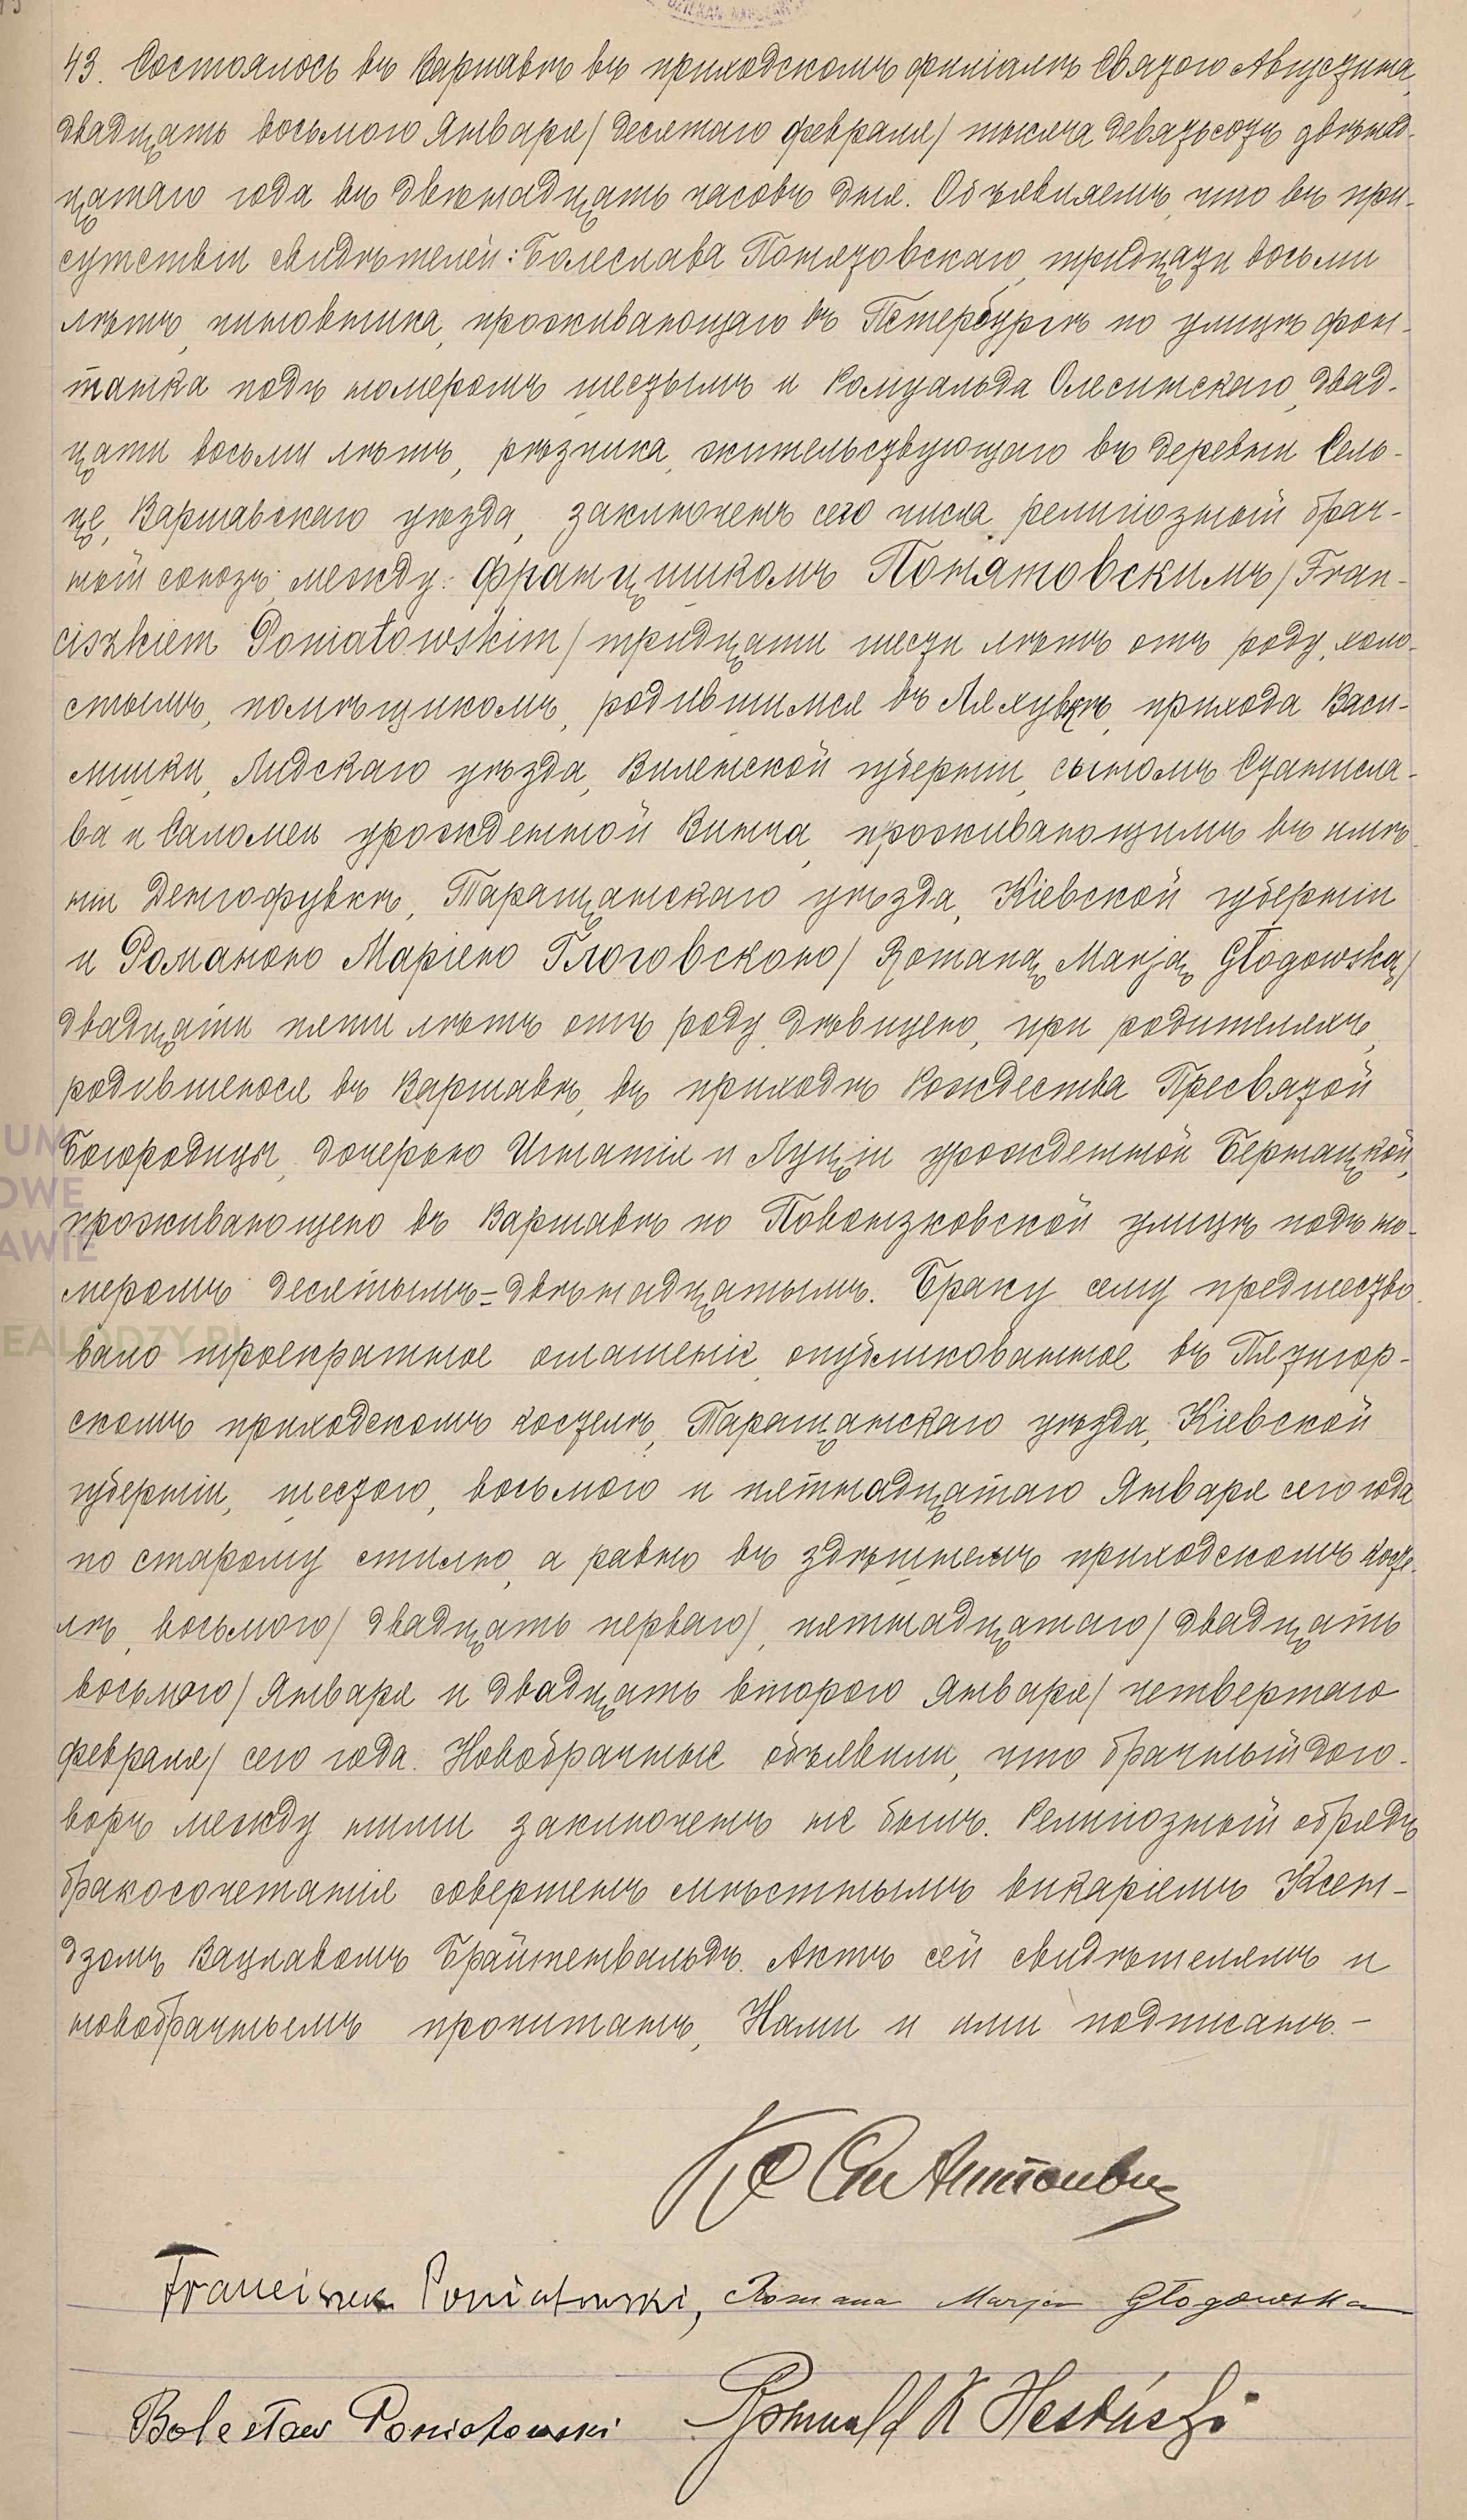 43. Состоялось въ Варшавѣ въ приходскомъ филіалѣ Святого Августина,
двадцать восьмого Января / десятаго февраля / тысяча девятьсотъ двѣнад-
цатаго года въ двѣнадцать часовъ дня. Объявляемъ, что въ при-
сутствіи свидѣтелей: Болеслава Понятовскаго, тридцати восьми
лѣтъ, чиновника, проживающаго въ Петербургѣ по улицѣ Фон-
танка подъ номеромъ шестымъ и Ромуальда Олесинскаго, двад-
цати восьми лѣтъ, рѣзчика, жительствующаго въ деревни Сель-
це, Варшавскаго уѣзда, заключенъ сего числа религіозный брач-
ный союзъ между: Францишкомъ Понятовскимъ / Fran-
ciszkiem Poniatowskim / тридцати шести лѣтъ отъ роду, холо-
стымъ, помѣщикомъ, родившимся въ Ляхувкѣ, прихода Васи-
лишки, Лидскаго уѣзда, Виленской губерніи, сыномъ Станисла-
ва и Саломеи урожденной Винча, проживающимъ въ имѣ-
ніи Денгофувкѣ, Таращанскаго уѣзда, Кіевской губерніи
и Романою Маріею Глоговскою / Romaną Marją Głogowską /
двадцати пяти лѣтъ отъ роду, дѣвицею, при родителяхъ,
родившеюся въ Варшавѣ, въ приходѣ Рождества Пресвятой
Богородицы, дочерью Игнатія и Луціи урожденной Бернацкой,
проживающею въ Варшавѣ по Повонзковской улицѣ подъ но-
меромъ десятымъ=двѣнадцатымъ. Браку сему предшество-
вало троекратное оглашеніе, опубликованное въ Пятигор-
скомъ приходскомъ костелѣ, Таращанскаго уѣзда, Кіевской
губерніи, шестого, восьмого и пятнадцатаго Января сего года
по старому стилю, а равно въ здѣшнемъ приходскомъ косте-
лѣ, восьмого / двадцать перваго /, пятнадцатаго / двадцать
восьмого / Января и двадцать второго Января / четвертаго
февраля / сего года. Новобрачные объявили, что брачный дого-
воръ между ними заключенъ не былъ. Религіозный обрядъ
бракосочетанія совершенъ мѣстнымъ викаріемъ Ксен-
дзомъ Вацлавомъ Брайтенвальдъ. Актъ сей свидѣтелямъ и
новобрачнымъ прочитанъ, Нами и ими подписанъ.-
Кс Ст Антоневич
Franciszek Poniatowski, Romana Marja Głogowska
Bolesław Poniatowski Romuald K